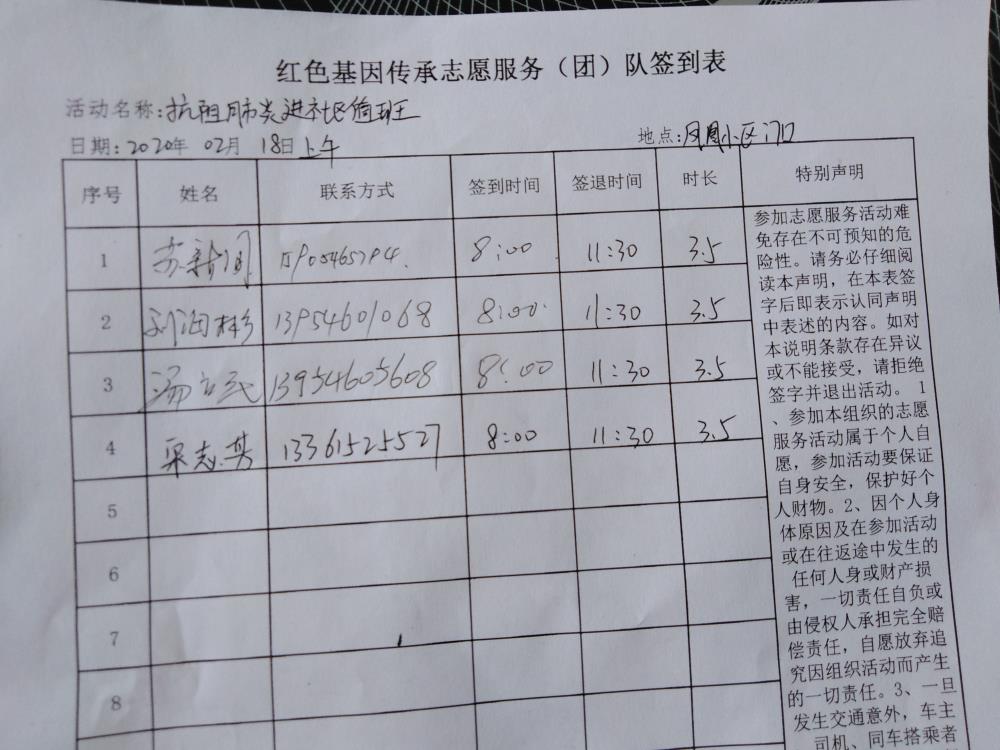 红色基因传承志愿服务（团）队签到表
活动名称:抗阻肺炎进社区值班
日期:2020年 02月 18日上午 地点:凤凰小区门口
序号 姓名 联系方式 签到时间 签退时间 时长 特别声明
1 8:00 11:30 3.5
2 刘海彬 13954601068 8:00 11:30 3.5
3 汤立民 13954605608 8:00 11:30 3.5
4 梁志芳 13361525527 8:00 11:30 3.5
5
6
7
8
参加志愿服务活动难
免存在不可预知的危
险性。请务必仔细阅
读本声明，在本表签
字后即表示认同声明
中表述的内容。如对
本说明条款存在异议
或不能接受，请拒绝
签字并退出活动。 1
、参加本组织的志愿
服务活动属于个人自
愿，参加活动要保证
自身安全，保护好个
人财物。2、因个人身
体原因及在参加活动
或在往返途中发生的
任何人身或财产损
害，一切责任自负或
由侵权人承担完全赔
偿责任，自愿放弃追
究因组织活动而产生
的一切责任。3、一旦
发生交通意外，车主
、司机、同车搭乘者